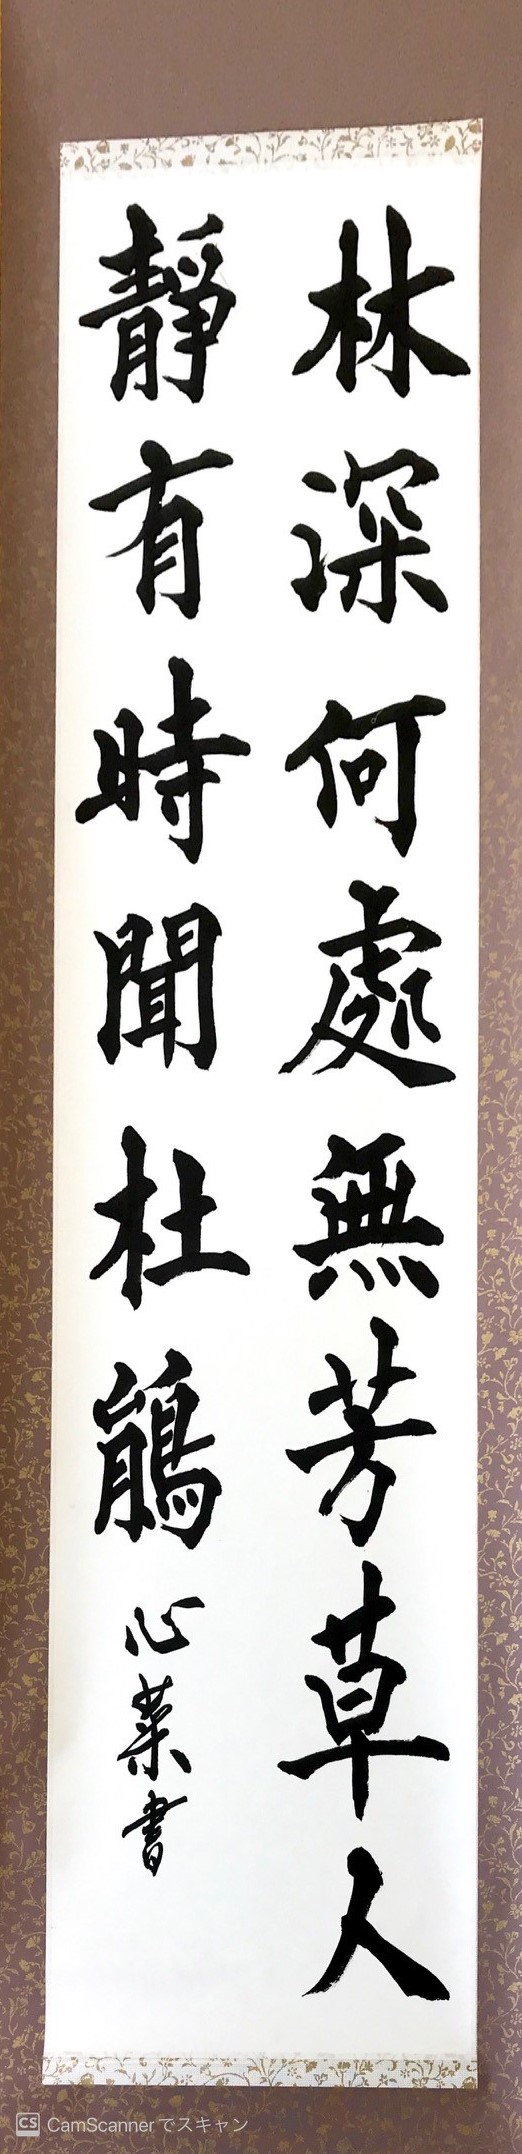 林深何處無芳草人
靜有時聞杜鵑
心菜書
CS CamScannerでスキャン